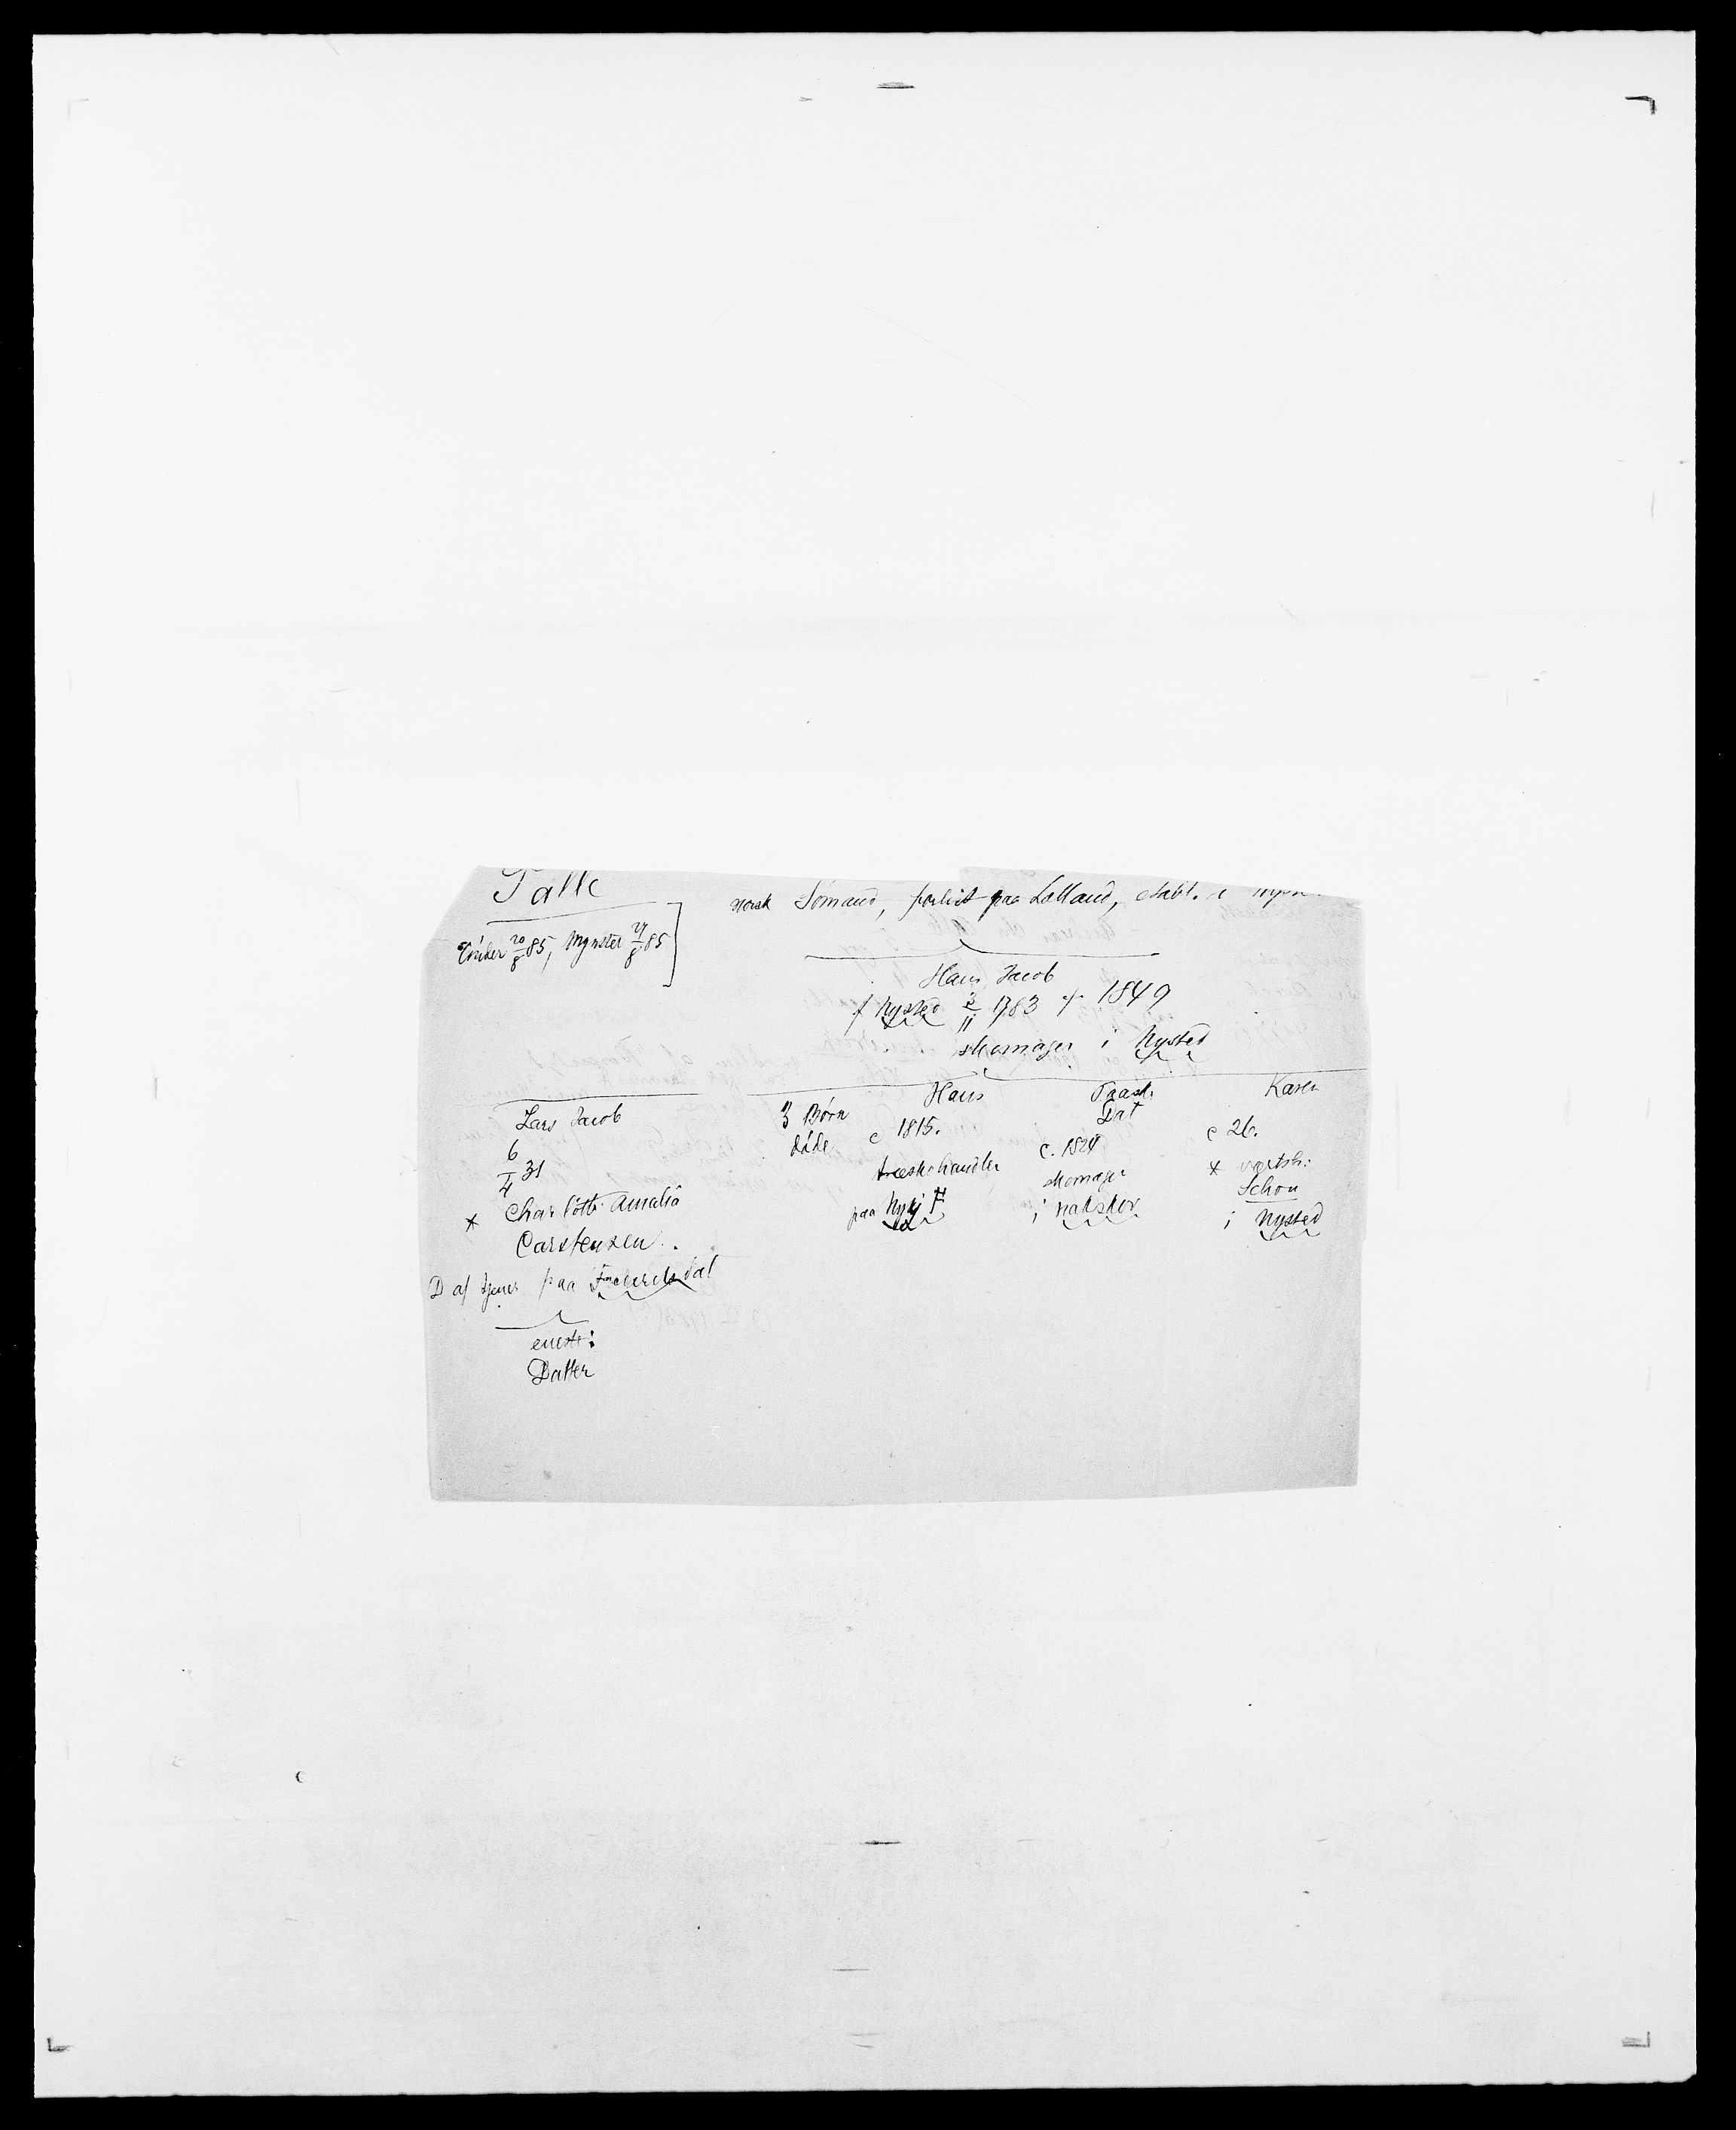 Palle
norsk Sömand, forlist paa Lolland, etabl. i
20/8 85, Mynster 27/8 85]
Hans Jacob
f Nysted 2/11 1783 † 1849
skomager i Nysted
Lars Jacob
6/4 31
* Charlotte Amalia
Carstensen.
D af tjener paa Frederiksdal
eneste
Datter
3 Börn
döde
Hans
c 1815.
træskohandler
paa Nykj F
Paask.
Dat
c. 1824
skomager
i Nakskov
Karen
c 26.
* værtsh:
Schou
i Nysted